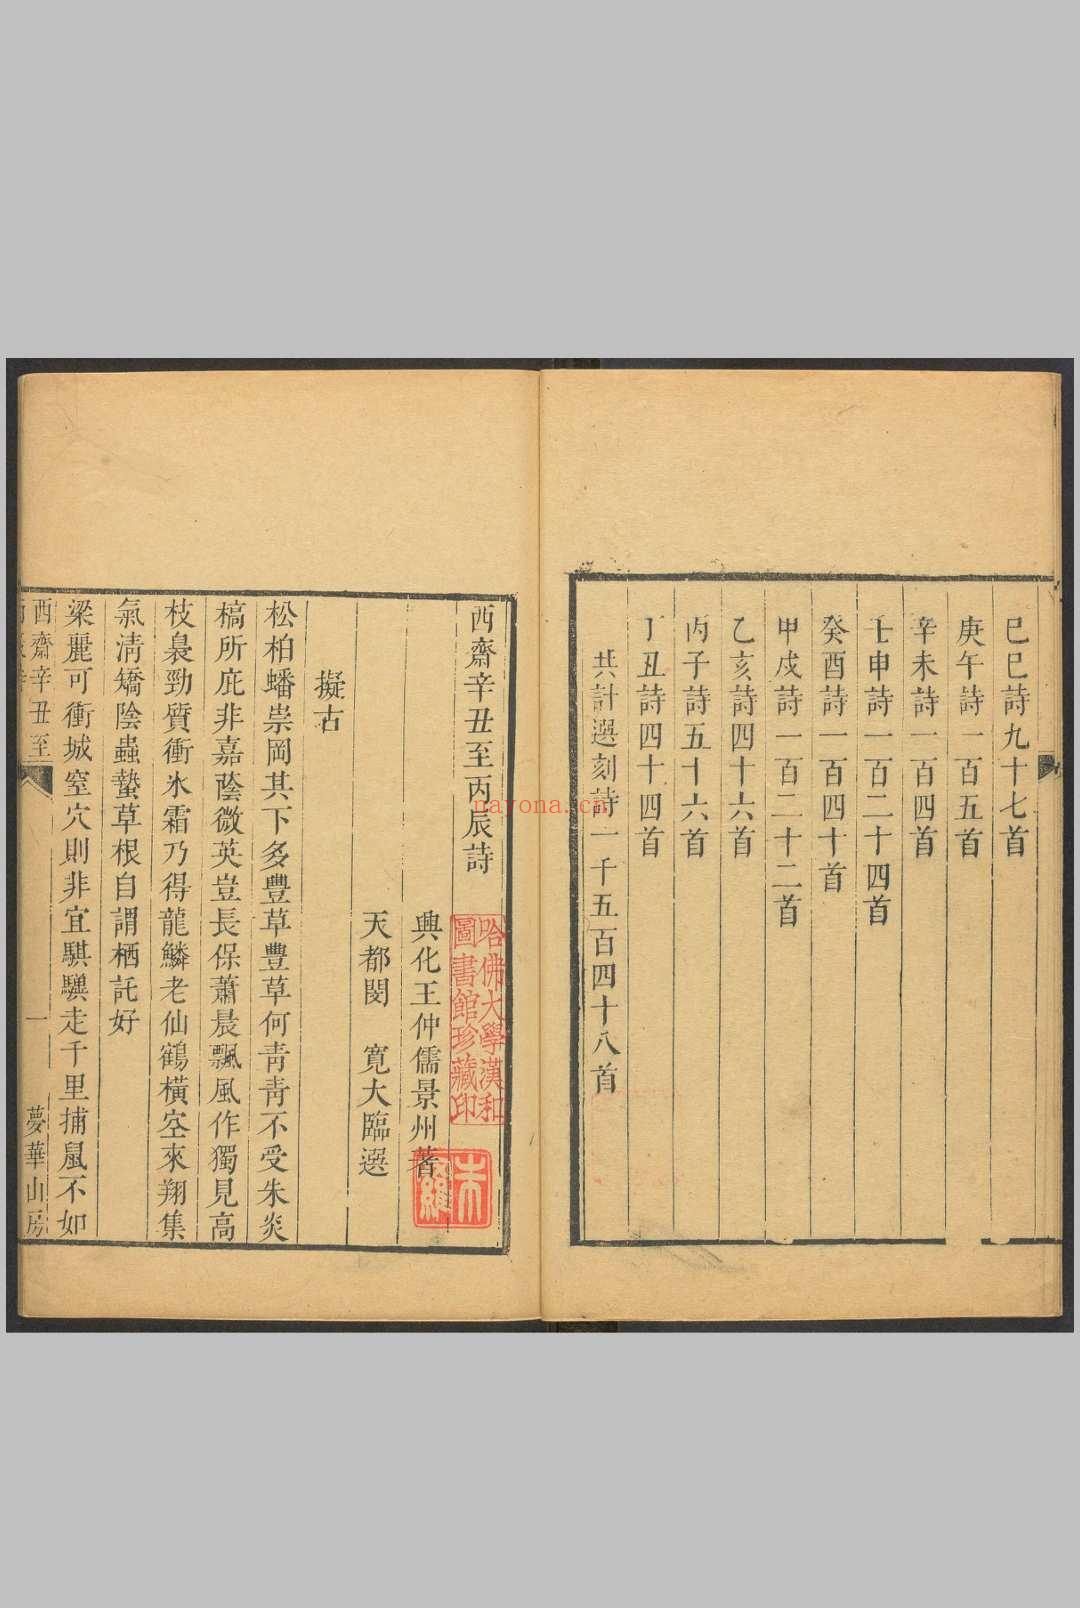 己巳詩九十七首
庚午詩一百五首
辛未詩一百四首
壬申詩一百二十四首
癸酉詩一百四十首
甲戌詩一百二十二首
乙亥詩四十六首
丙子詩五十六首
丁丑詩四十四首
共計選刻詩一千五百四十八首
西齋辛丑至丙辰詩
興化王仲儒景州著
天都閔　寬大臨選
擬古
松柏蟠崇岡其下多豐草豐草何靑靑不受朱炎
槁所庇非嘉蔭微英豈長保蕭晨飄風作獨見高
枝裊勁質衝氷霜乃得龍鱗老仙鶴橫空來翔集
氣淸矯陰蟲蟄草根自謂栖託好
梁麗可衝城窒穴則非宜騏驥走千里捕鼠不如
西齋辛丑至
一
夢華山房
哈佛大學漢和
圖書館珍藏印
nayona.cn